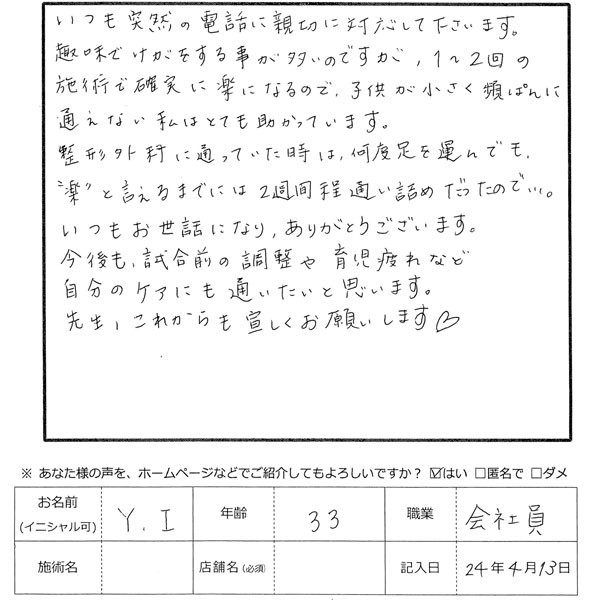 いつも突然の電話に親切に対応して下さいます。
趣味でけがをする事が多いのですが、1〜2回の
施術で確実に楽になるので、子供が小さく頻ぱんに
通えない私はとても助かっています。
整形外科に通っていた時は、何度足を運んでも、
"楽"と言えるまでには2週間程通い詰めだったので…。
いつもお世話になり、ありがとうございます。
今後も、試合前の調整や育児疲れなど
自分のケアにも通いたいと思います。
先生、これからも宜しくお願いします♡
※ あなた様の声を、ホームページなどでご紹介してもよろしいですか? ☑はい □匿名で □ダメ
お名前 (イニシャル可) Y.I 年齢 33 職業 会社員
施術名 店舗名(必須) 記入日 24年4月13日